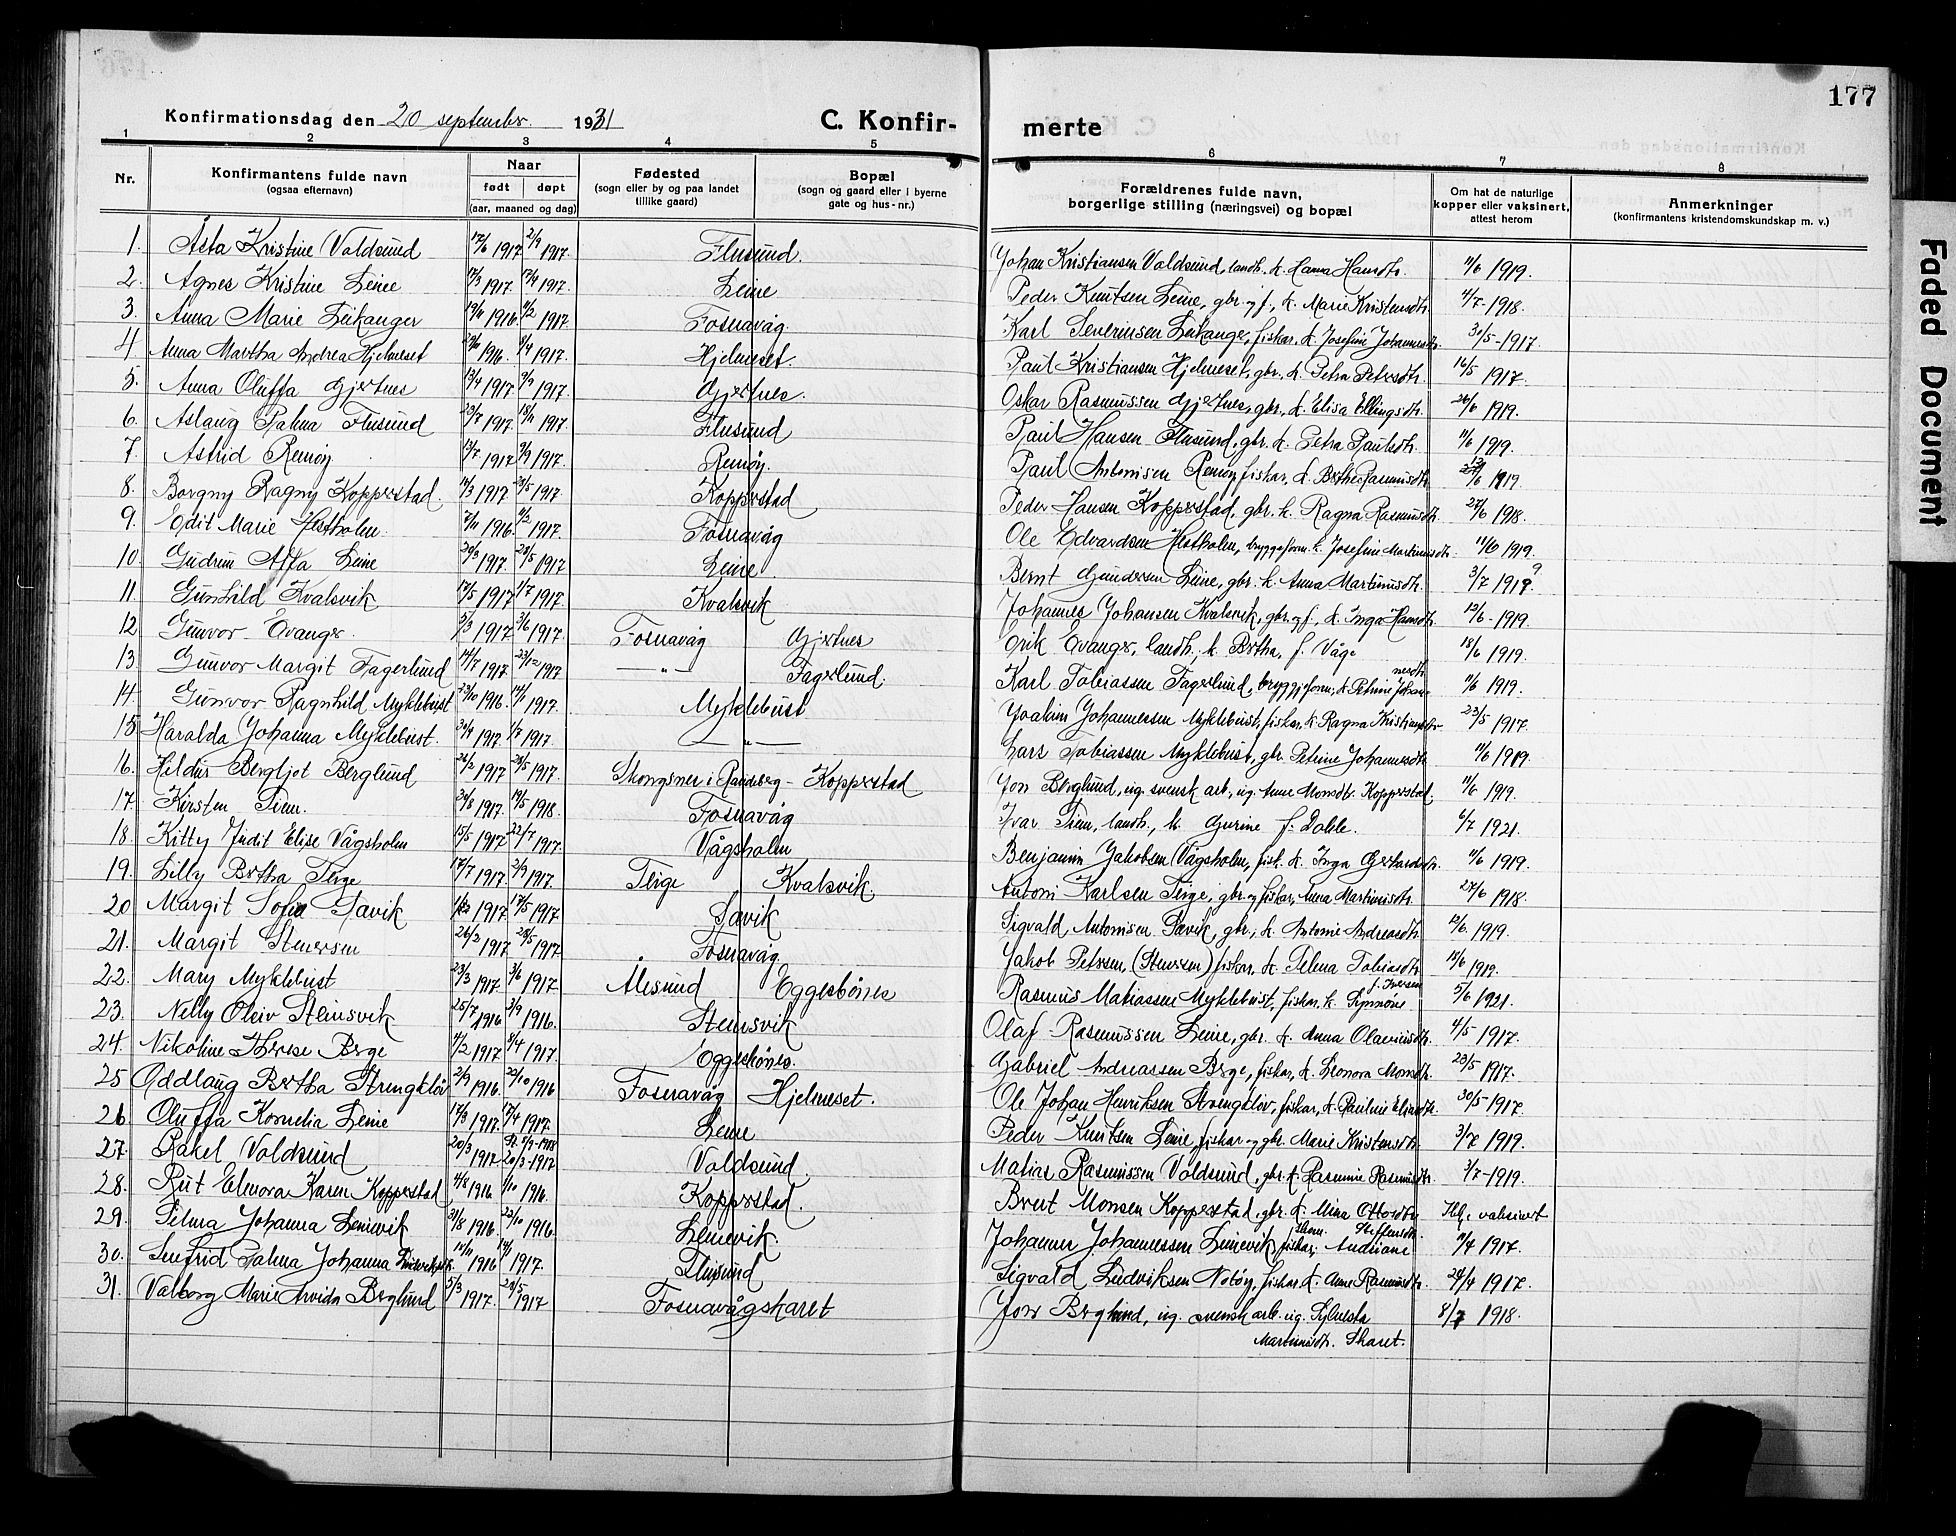 177
Konfirmationsdag den 20 september 1931
C. Konfirmerte
1 2 3 4 5 6 7 8
Nr. Konfirmantens fulde navn (ogsaa efternavn) Naar født døpt (aar, maaned og dag) Fødested (sogn eller by og paa landet tillike gaard) Bopæl (sogn og gaard eller i byerne gate og hus-nr.) Forældrenes fulde navn, borgerlige stilling (næringsvei) og bopæl Om hat de naturlige kopper eller vaksinert, attest herom Anmerkninger (konfirmantens kristendomskundskap m. v.)
1. Åsta Kristine Voldsund 17/6 1917 2/9 1917. Flusund. Johan Kristiansen Voldsund, landh. h. Hanna Hansdtr. 11/6 1919.
2. Agnes Kristine Leine 17/3 1917. 17/4 1917. Leine Peder Knutsen Leine, gbr. og f., h. Marie Kristensdtr. 4/7-1918.
3. Anna Marie Leikanger 1916 1917. Fosnavåg. Karl Severinsen Leikanger, fiskar, h. Josefine Johannesdtr. 31/5-1917.
4 Anna Martha Andrea Hjelmeset 1916. 1917. Hjelmeset. Paul Kristiansen Hjelmeset, gbr. h. Petra Petersdtr. 16/5 1917.
5. Anna Oluffa Gjertnes 13/4 1917. 1917. Gjertnes. Oskar Rasmussen Gjertnes, gbr., h. Elisa Ellingsdtr. 26/6 1919.
6. Aslaug Palma Flusund 23/7 1917. 18/11 1917. Flusund Paul Hansen Flusund, gbr. h. Petra Paulsdtr. 11/6 1919.
7 Astrid Remøy 13/7 1917 9/9 1917. Remøy. Paul Antonisen Remøy, fiskar, h. Berthe Rasmusdtr. 1919.
8. Borgny Ragny Kopperstad. 14/3 1917. 28/5 1917. Kopperstad Peder Hansen Kopperstad, gbr. h. Ragna Rasmusdtr. 27/6 1918.
9. Edit Marie Hestholm 1916 1917. Fosnavåg Ole Edvardsen Hestholm, bryggeform. h. Josefine Martinusdtr. 11/6 1919.
10. Gudrun Asta Leine 20/3 1917. 28/5 1917 Leine Bernt Gundersen Leine, gbr. h. Anna Martinusdtr. 3/7 1919
11 Gunhild Kvalsvik 17/5 1917 1/7 1917. Kvalsvik Johannes Johansen Kvalsvik, gbr. og f., h. Inga Hansdtr. 13/6-1919.
12 Gunvor Evanger. 5/3 1917. 3/6 1917. Fosnavåg Gjertnes Erik Evanger, landh., h. Bertha, f. Våge 18/6 1919.
13 Gunvor Margit Fagerlund 14/7 1917. 23/12 1917 —"— Fagerlund. Karl Tobiassen Fagerlund, bryggjeform, h. Petrine Johannesdtr. 11/6 1919.
14. Gunvor Ragnhild Myklebust 23/10 1916. 14/1 1917. Myklebust Joakim Johannessen Myklebust, fiskar, h. Ragna Kristiansdtr 23/5 1917.
15 Haralda Johanna Myklebust. 30/4 1917 1/7 1917. —"— Lars Tobiassen Myklebust, gbr. Petrine Johannesdtr. 11/6 1919.
16. Hildur Bergljot Berglund 26/2 1917 28/5 1917. Skongsnes i Randaberg - Kopperstad Jon Berglund, ug. svensk arb., ug. Anne Monsdtr. Kopperstad. 11/6 1919.
17. Kirsten Tiem. 29/8 1917. 19/5 1918. Fosnavåg Ivar Tiem, landh., h. Gurine f. Dahle. 6/7 1921.
18. Kitty Judit Elise Vågsholm 15/5 1917 22/7 1917. Vågsholm Benjamin Jakobsen Vågsholm, fisk. h. Inga Gerhardsdtr. 11/6 1919.
19. Lilly Bertha Teige 17/7 1917. 2/9 1917. Teige Kvalsvik. Antoni Karlsen Teige, gbr. og fiskar, Anna Martinusdtr. 27/6 1918.
20 Margit Sofie Sævik 1917 17/5 1917 Sævik Sigvald Antonisen Sævik, gbr., h. Antonie Andreasdtr. 13/6. 1919.
21. Margit Stenersen 26/2 1917 28/5 1917. Fosnavåg Jakob Petersen, (Stenersen) fiskar, h. Telma Tobiasdtr. 14/6 1919.
22. Mary Myklebust 23/3 1917. 3/6 1917. Ålesund Eggesbönes Rasmus Matiassen Myklebust, fiskar, h. Synnöve f. Iversen 5/6 1921.
23. Nelly Oleiv Steinsvik 25/7 1916 3/9 1916. Steinsvik Olaf Rasmussen Leine, gbr. h. Anna Olavusdtr. 4/5-1917.
24. Nikoline Therese Berge 4/2 1917 9/4 1917. Eggesbönes. Gabriel Andreassen Berge, fiskar, h. Leonora Monsdtr. 23/5 1917.
25 Oddlaug Bertha Strengelöv 2/9 1916. 22/10 1916 Fosnavåg Hjelmeset. Ole Johan Henriksen Strengelöv, fiskar, h. Pauline Eliasdtr. 30/5-1917.
26. Oluffa Kornelia Leine 17/3 1917. 17/4 1917. Leine Peder Knutsen Leine, fiskar og gbr. Marie Kristensdtr. 3/7 1919.
27. Rakel Voldsund 20/3 1917 20/3-1917 Voldsund. Matias Rasmussen Voldsund, gbr. h. Rasmine Rasmusdtr. 3/7-1919.
28. Rut Elenora Karen Kopperstad 4/8 1916 1/10 1916. Kopperstad. Brent Monsen Kopperstad, gbr. h. Mina Ottosdtr vaksinert
29. Selma Johanna Leinevik 31/8 1916 22/10 1916. Leinevik. Johannes Johannessen Leinevik fiskar, Andriane Steffensdtr. 11/4 1917.
30. Senfrid Palma Johanna 14/11 1916 14/1 1917. Flusund Sigvald Ludviksen Notøy, fiskar, h. Anne Rasmusdtr. 24/4 1917.
31. Valborg Marie Arvida Berglund 5/3 1917. 28/5 1917 Fosnavågskaret Jon Berglund, ug. svensk arb. ug. Sylvesta 8/7 1918.
Martinusdtr. Skaret.
Faded Document